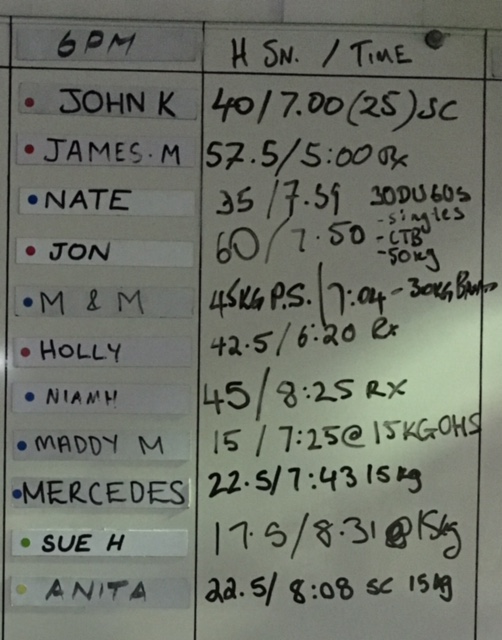 6PM H SN. / TIME
JOHN K 40/7.00 (25) SC
JAMES. M 57.5/5:00 Rx
NATE 35/7.59 30DU 60S
-singles
JON 60/7.50 -CTB
-50kg
M & M 45KG P.S. / 7:04 - 30KG
HOLLY 42.5/6:20 Rx
NIAMH 45/8:25 RX
MADDY M 15/7:25@ 15KG OHS
MERCEDES 22.5/7:43 15kg
SUE H 17.5/8.31 @15kg
ANITA 22.5/8:08 SC 15kg